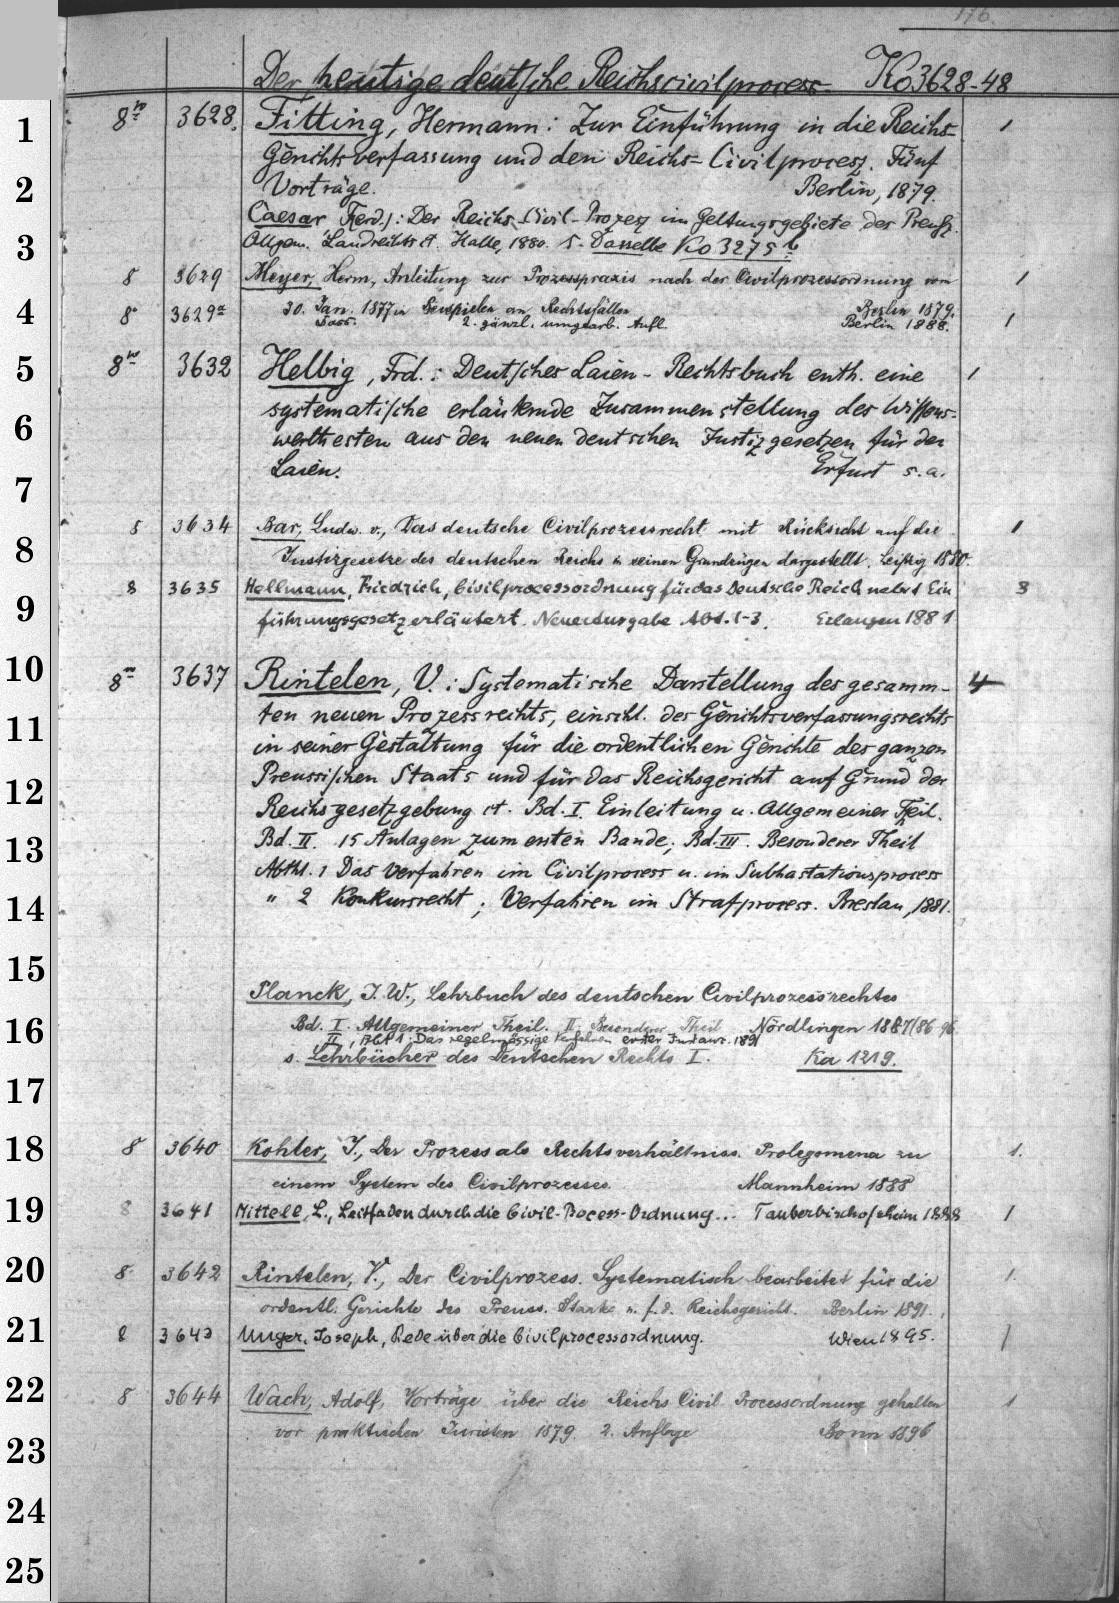 176.
Der heutige deutsche Reichscivilprocess Ko3628-48
1 8º 3628. Fitting, Hermann: Zur Einführung in die Reichs- 1
Gerichtsverfassung und den Reichs=Civilprocesz. Fünf
2 Vorträge. Berlin, 1879.
Caesar (Ferd.): Der Reichs-Civil-Prozesz im Geltungsgebiete des Preusz.
3 Allgem. Landrechts et. Halle, 1880. S. Dasselbe Ko 3275 b
8 3629 Meyer, Herm, Anleitung zur Prozesspraxis nach der Civilprozessordnung vom 1
4 30. Jan. 1877 in Beispielen an Rechtsfällen Berlin 1879.
8º 3629a Dass. 2. gänzl. umgearb. Aufl. Berlin 1888. 1
5 8º 3632 Helbig, Frd.: Deutsches Laien-Rechtsbuch enth. eine 1
systematische erläuternde Zusammenstellung des Wissens-
6 werthesten aus den neuen deutschen Justizgesetzen für den
Laien. Erfurt s.a.
7
8 3634 Bar, Ludw. v., Das deutsche Civilprozessrecht mit Rücksicht auf die 1
8 Justizgesetze des deutschen Reichs in seinen Grundzügen dargestellt. Leipzig 1880.
8 3635 Hellmann, Friedrich, Civilprocessordnung für das Deutsche Reich nebst Ein 3
9 führungsgesetz erläutert. Neue Ausgabe Abt. 1-3. Erlangen 1881
10 8º 3637 Rintelen, V.: Systematische Darstellung des gesamm- 4
11 ten neuen Prozessrechts, einschl. des Gerichtsverfassungsrechts
in seiner Gestaltung für die ordentlichen Gerichte des ganzen
12 Preussischen Staats und für das Reichsgericht auf Grund der
Reichsgesetzgebung et. Bd. I. Einleitung u. Allgemeiner Theil.
13 Bd. II. 15 Anlagen zum ersten Bande; Bd. III. Besonderer Theil
Abthl. 1 Das Verfahren im Civilprocess u. im Subhastationsprocess
14 " 2 Konkursrecht; Verfahren im Strafprocess. Breslau, 1881.
15
Planck, J. W., Lehrbuch des deutschen Civilprozessrechtes
16 Bd. I. Allgemeiner Theil. II. Besonderer Theil Nördlingen 1887/86-96
II, Abt 1: Das regelmässige Verfahren erster Instanz. 1891
s. Lehrbücher des Deutschen Rechts I. Ka 1219.
17
18 8 3640 Kohler, J., Der Prozess als Rechtsverhältniss. Prolegomena zu 1.
einem System des Civilprozesses. Mannheim 1888
19 8 3641 Mittell, L., Leitfaden durch die Civil-Process-Ordnung... Tauberbischofsheim 1888 1
20 8. 3642 Rintelen, V., Der Civilprozess. Systematisch bearbeitet für die 1.
ordentl. Gerichte des Preuss. Staats u. f. d. Reichsgericht. Berlin 1891.
21 8 3643 Unger, Joseph, Rede über die Civilprocessordnung. Wien 1895. 1
22 8 3644 Wach, Adolf, Vorträge über die Reichs Civil Processordnung gehalten 1
23 vor praktischen Juristen 1879. 2. Auflage Bonn 1896
24
25